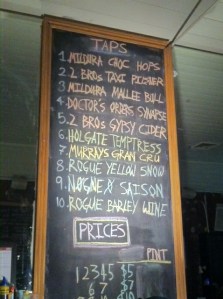 TAPS
1 MILDURA CHOC HOPS
2. 2 BROS TAXI PILSNER
3 MILDURA MALLEE BULL
4 DOCTOR'S ORDERS SYNAPSE
5. 2 BROS GYPSY CIDER
6. HOLGATE TEMPTRESS
7 MURRAYS GRAN CRU
8 ROGUE YELLOW SNOW
9. NØGNE Ø SAISON
10. ROGUE BARLEY WINE
PRICES
PINT
1 2 3 4 5 $5
6 7 $7